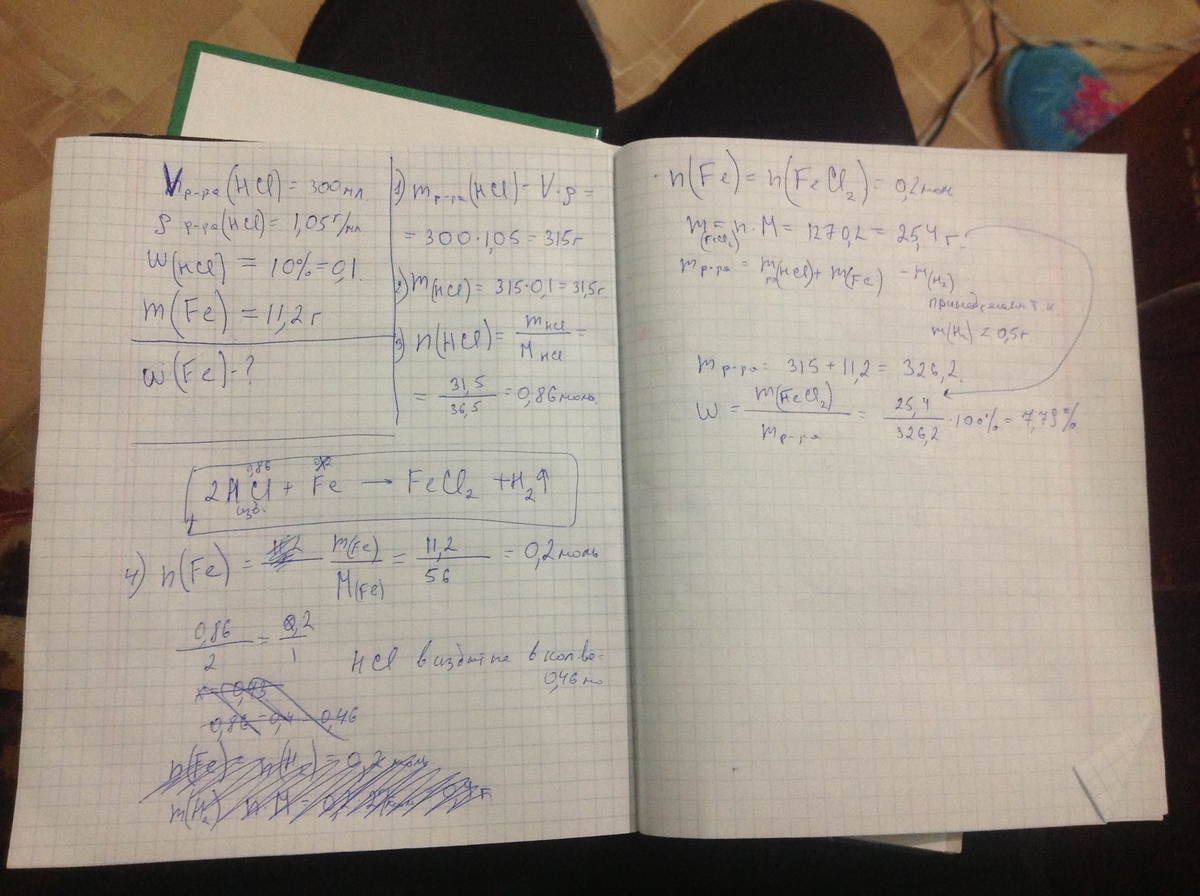 Vр-ра(HCl) = 300 мл
ρ р-ра(HCl) = 1,05 г/мл
W(HCl) = 10% = 0,1
m(Fe) = 11,2 г
ω(Fe) - ?
1) mр-ра(HCl) = V·ρ =
= 300·1,05 = 315 г
2) m(HCl) = 315·0,1 = 31,5 г.
3) n(HCl) = mHCl / MHCl =
= 31,5 / 36,5 = 0,86 моль
0,86 0,2
2HCl + Fe → FeCl2 + H2↑
изб.
4) n(Fe) = m(Fe) / M(Fe) = 11,2 / 56 = 0,2 моль
0,86 / 2 = 0,2 / 1
HCl в избытке в кол-ве =
0,46 мо
x = 0,43
0,86 - 0,4 0,46
n(Fe) = n(H2) = 0,2 моль
m(H2) n·M = 0,2·2 = 0,4 г
n(Fe) = n(FeCl2) = 0,2 моль
m(FeCl2) = n·M = 127·0,2 = 25,4 г.
mр-ра = mр-ра(HCl) + m(Fe) - m(H2)
пренебрегаем т.к
m(H2) < 0,5 г
mр-ра = 315 + 11,2 = 326,2.
W = m(FeCl2) / mр-ра = 25,4 / 326,2 · 100% = 7,79%